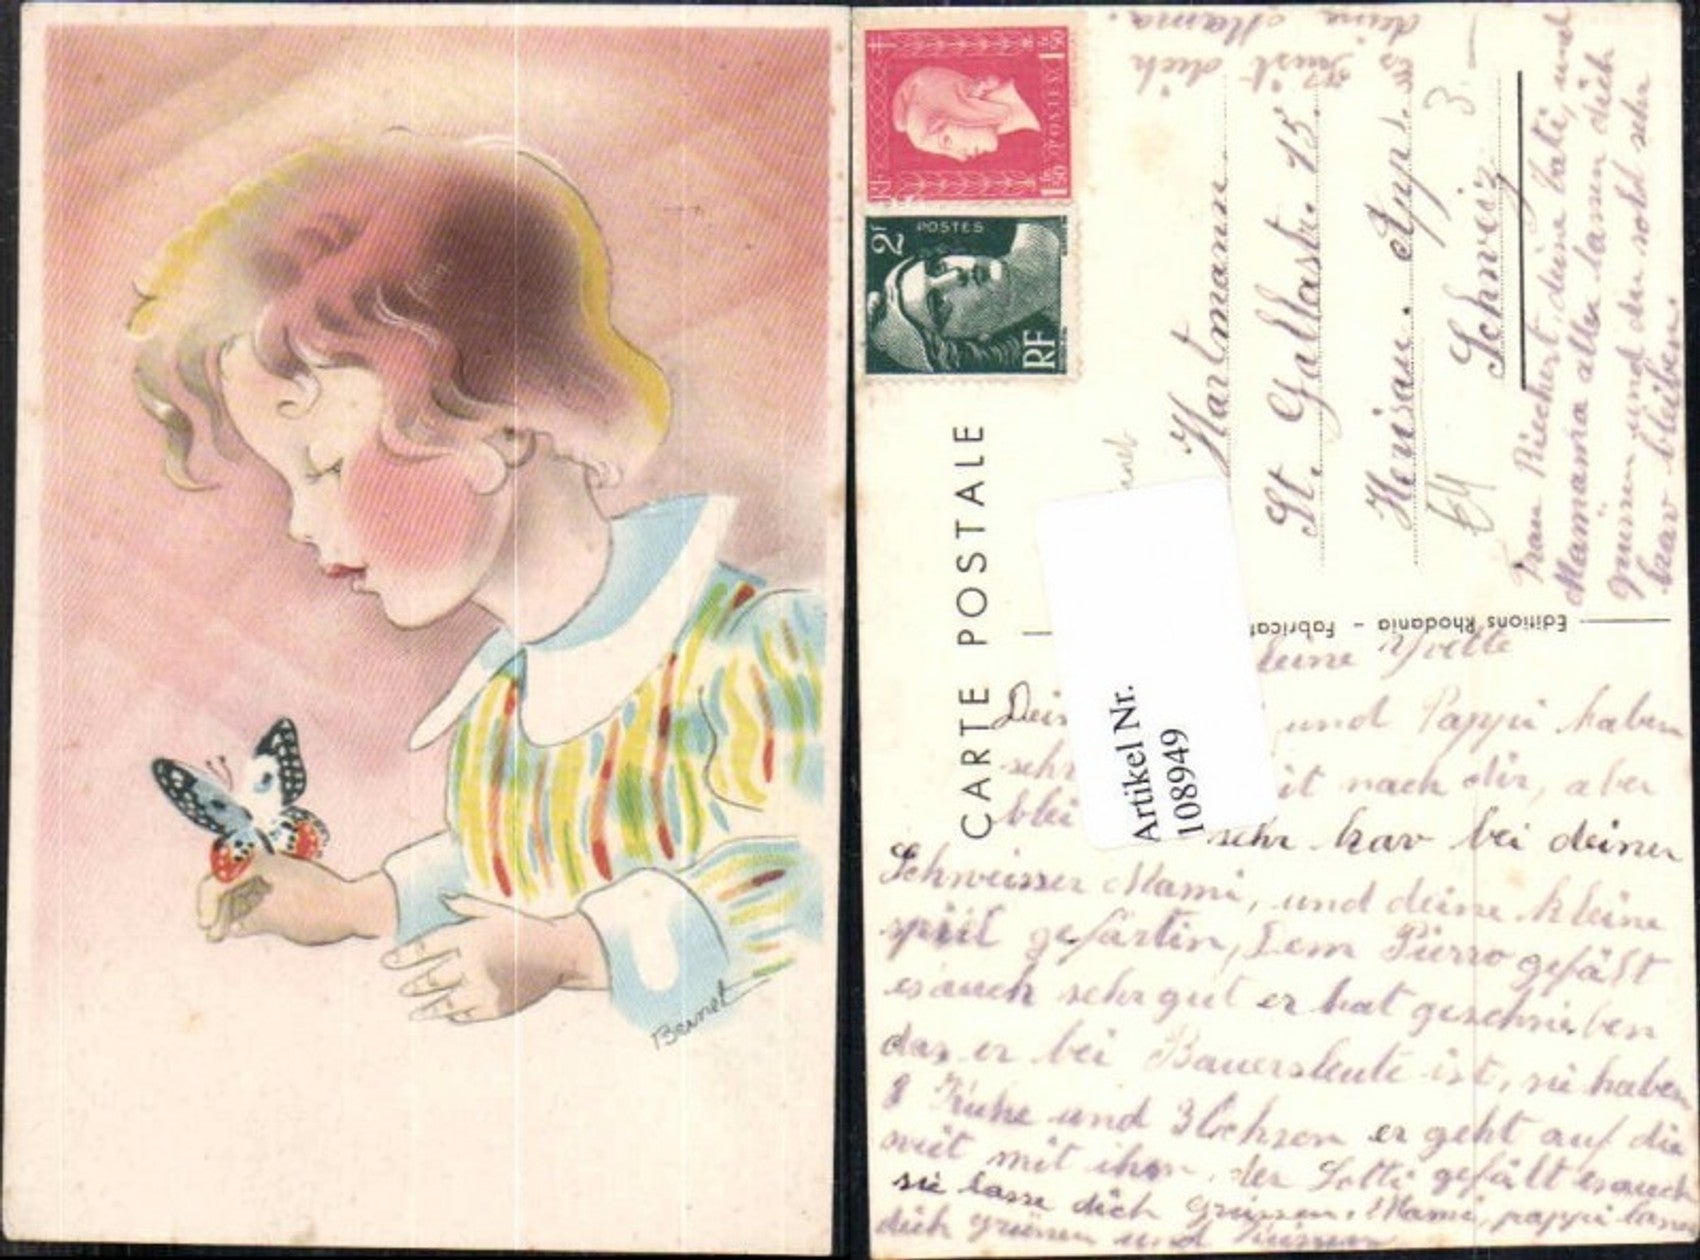 Bernet
1f50 POSTES 1f50
2f POSTES
RF
CARTE POSTALE
Hartmann
St. Gallastr. 15.
Herisau. App.
Schweiz
3
Editions Rhodania - Fabricat
Artikel Nr.
108949
kleine Yvette
und Pappi haben
sehr nach dir, aber
sehr brav bei deiner
Schweisser Mami, und deine kleine
gefärtin, Dem Pierro gefält
es auch sehr gut er hat geschrieben
das er bei Bauersleute ist, sie haben
8 Kühe und 3 Ochsen er geht auf die
weit mit ihm, der Lotti gefält es auch
sie lasse dich Grüssen. Mami, pappi lassen
dich grüssen und küssen
Frau Riechert, deine Tati, und
Mamama alle lassen dich
grüssen und du solst sehr
brav bleiben.
es küst dich
deine Mama.